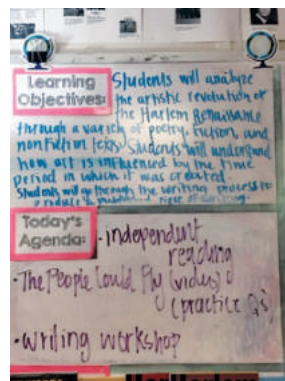 Learning
Objectives:
Students will analyze
the artistic revolution of
the Harlem Renaissance
through a variety of poetry, fiction, and
nonfiction texts. Students will understand
how art is influenced by the time
period in which it was created.
Students will go through the writing process to
produce a piece of writing.
Today's
Agenda:
• independent
reading
• The People Could Fly (video)
(practice Qs)
• writing workshop